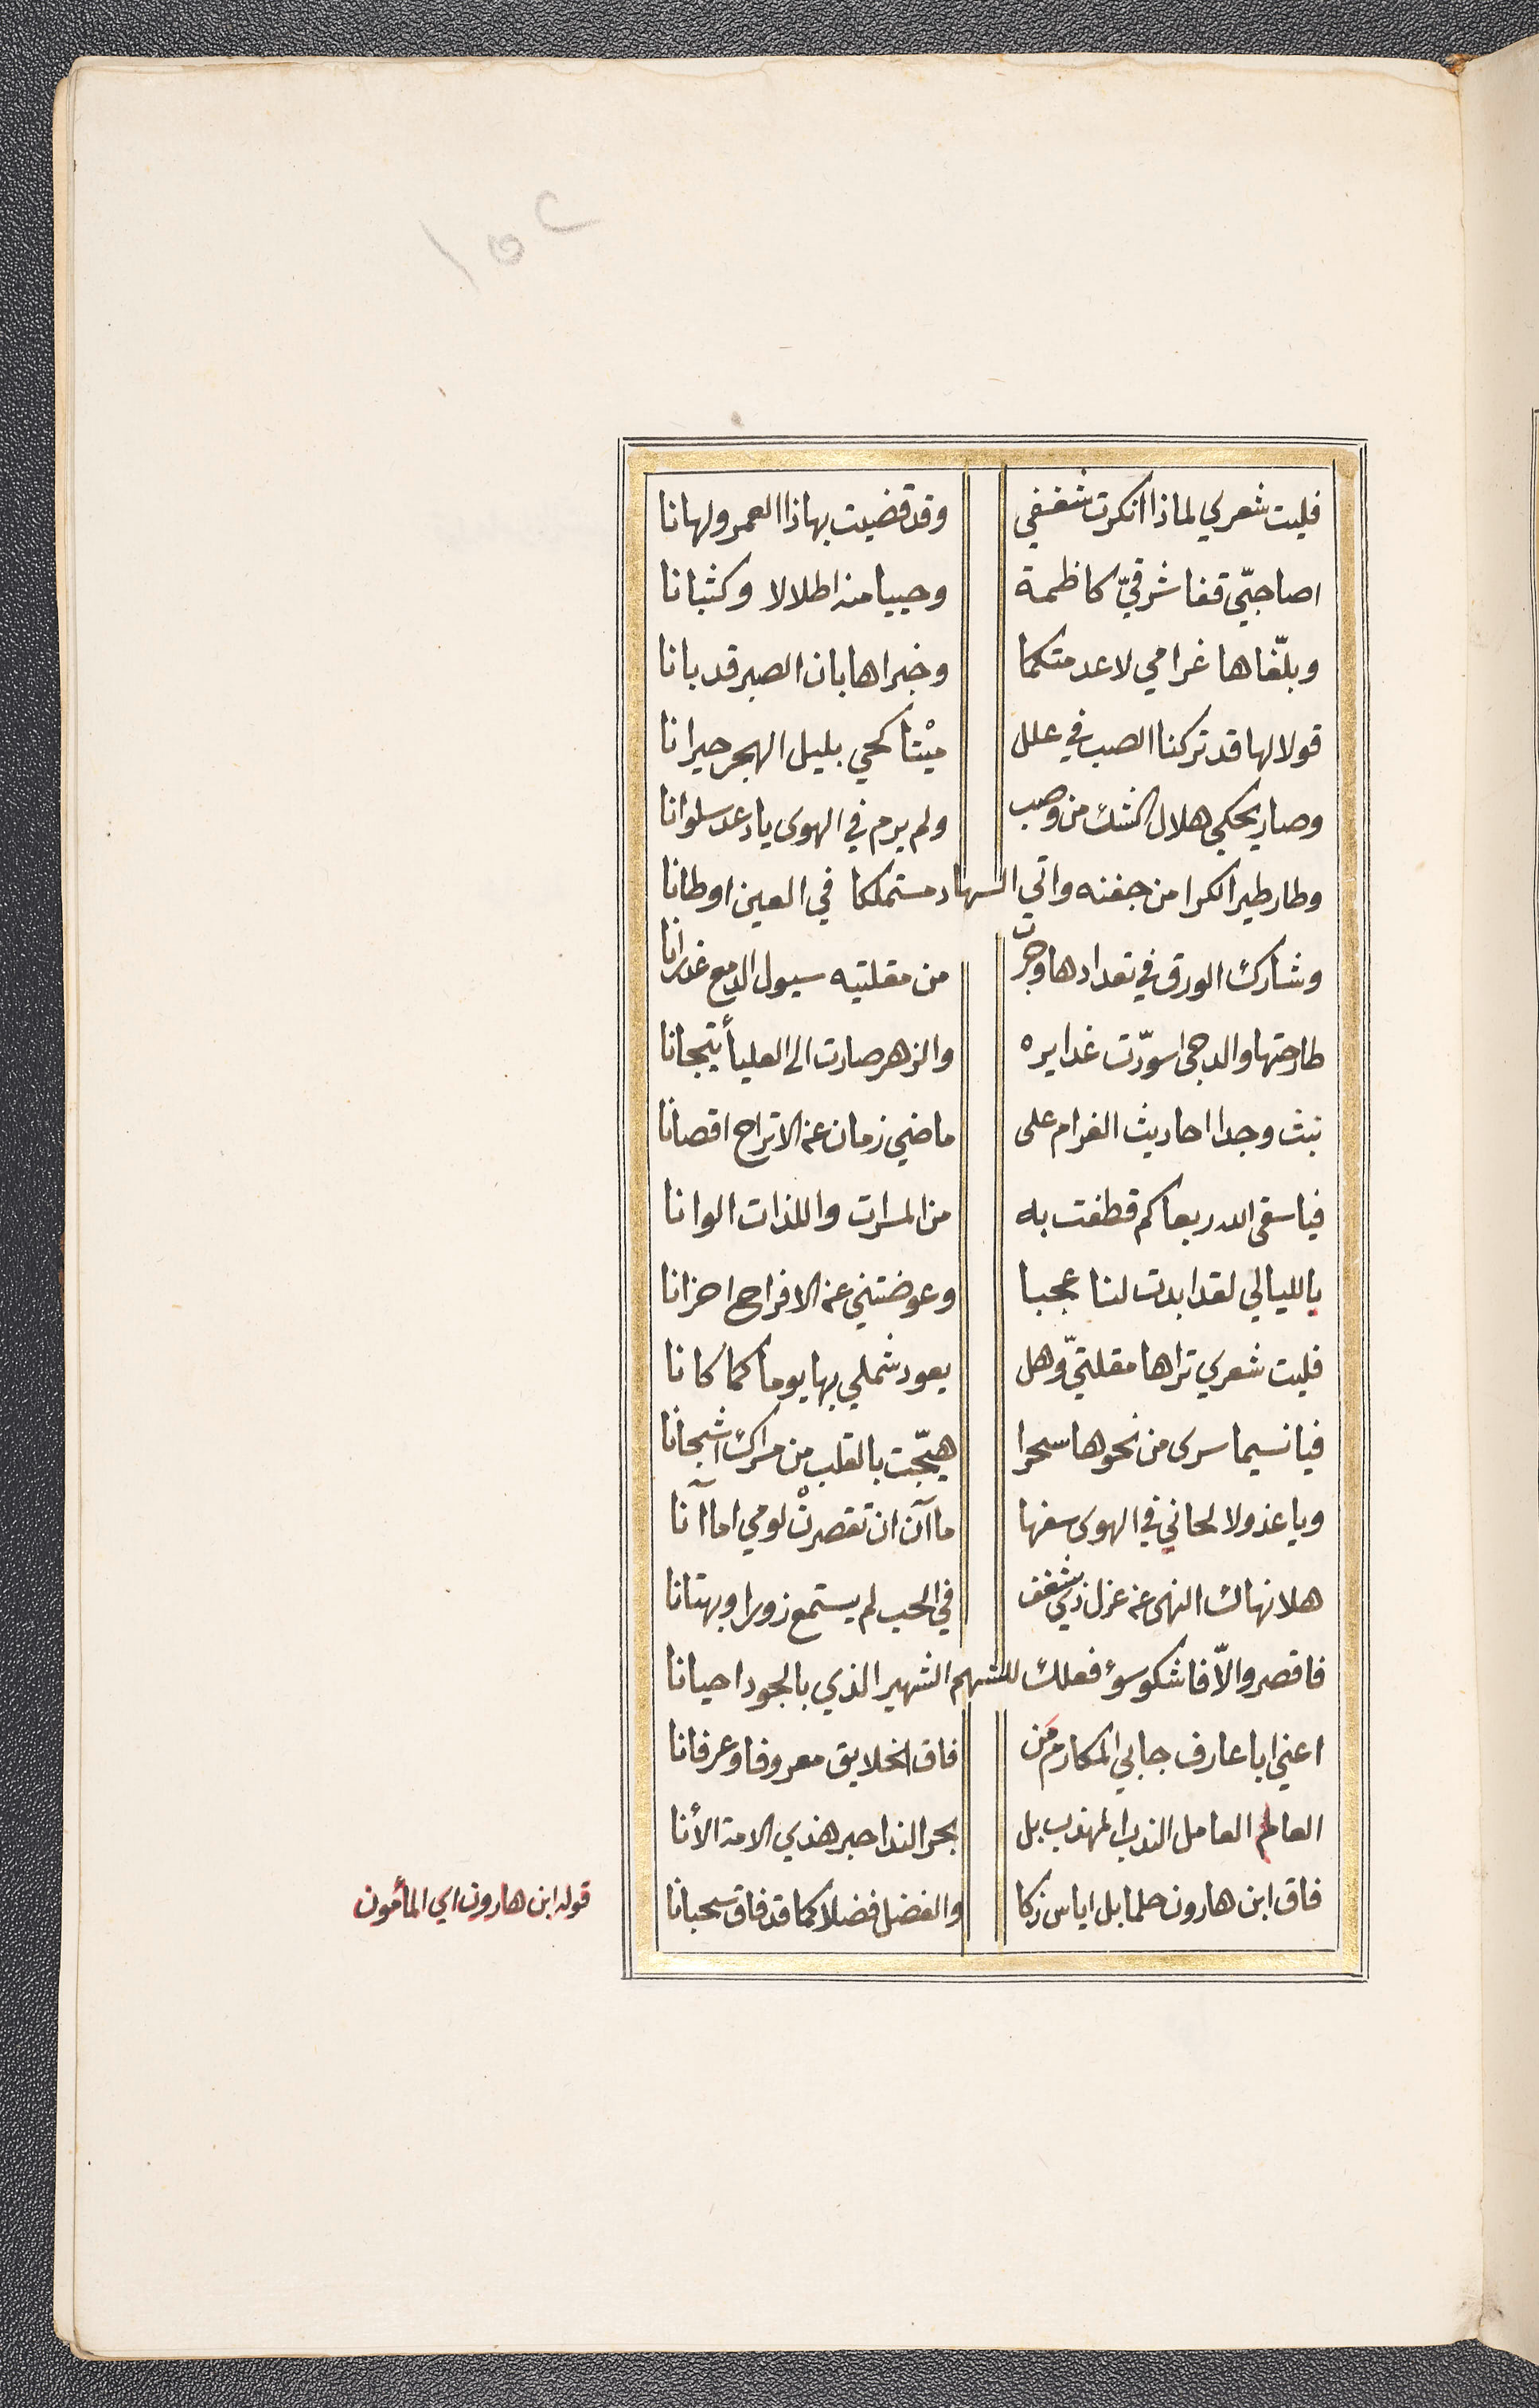 ١٥٢
فليت شعري لماذا انكرت شغفي وقد قضيت بهاذا العمر ولهانا
اصاحبّي قفا شرقيّ كاظمة وحييا منه اطلالا وكثبانا
وبلّغاها غرامي لا عدمتكما وخبراها بان الصبر قد بانا
قولا لها قد تركنا الصب في علل ميْتا كحي بليل الهجر حيرانا
وصار يحكي هلال الشك من وصب ولم يرم في الهوى يا دعد سلوانا
وطار طير الكرا من جفنه واتي السهاد مستملكا في العين اوطانا
وشارك الورق في تعدادها وجرت من مقلتيه سيول الدمع غدرانا
طارحتها والدجى اسودّت غدايره والزهر صارت الى العليأ تيجانا
نبث وجدا احاديث الغرام على ماضي زمان عن الاتراح اقصانا
فيا سقى الله ربعا كم قطفت به من المسرات واللذات الوانا
يا لليالي لقد ابدت لنا عجبا وعوضتني عن الافراح احزانا
فليت شعري تراها مقلتيّ وهل يعود شملي بها يوما كما كانا
فيا نسيما سرى من نحوها سحرا هيّجت بالقلب من مسراك اشجانا
ويا عذولا لحاني في الهوى سفها ما آن ان تقصرنْ لومي اما آنا
هلا نهاك النهى عن عزل ذي شغف في الحب لم يستمع زورا وبهتانا
فاقصر والاّ فاشكو سؤ فعلك للشهم الشهير الذي بالجود احيانا
اعني ابا عارف جابي المكارم مَن فاق الخلايق معروفا وعرفانا
العالم العامل الندب المهذب بل بحر الندا حبر هذي الامة الأنا
فاق ابن هارون حلما بل اياس زكا والفضل فضلا كما قد فاق سحبانا
قوله ابن هارون اي المأمون